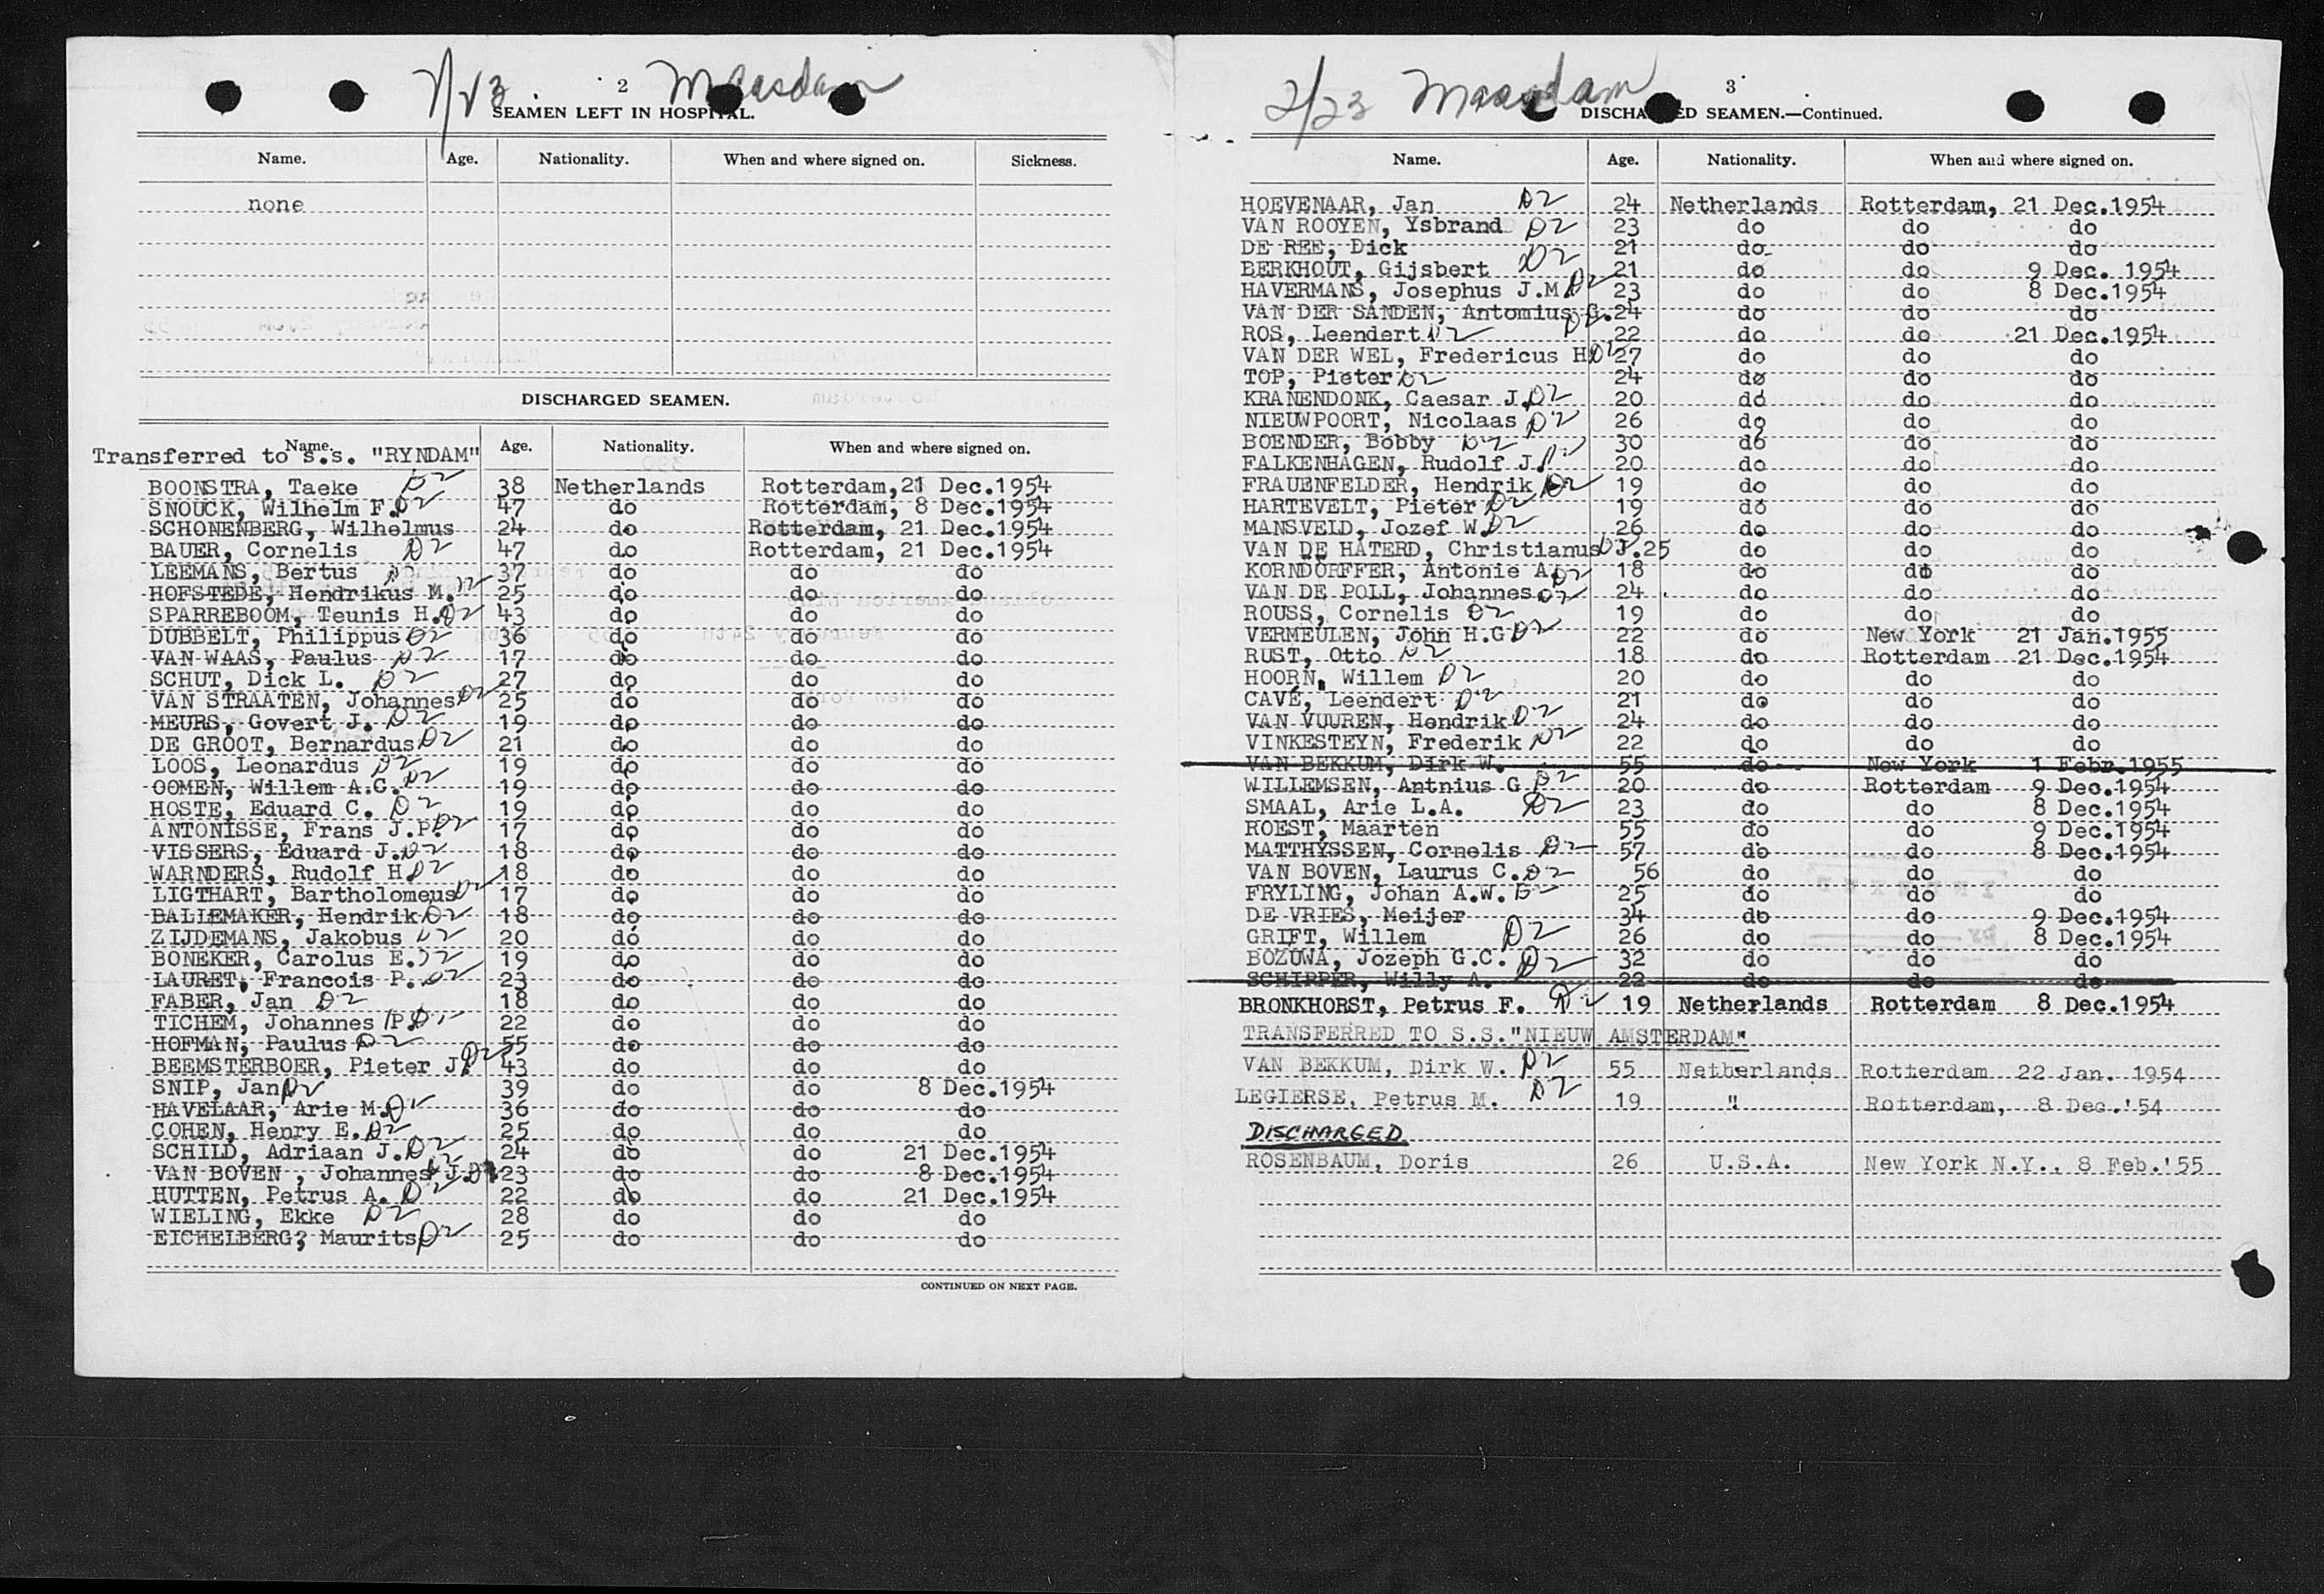 2
Maasdam
SEAMEN LEFT IN HOSPITAL.
Name. Age. Nationality. When and where signed on. Sickness.
none
DISCHARGED SEAMEN.
Name. Age. Nationality. When and where signed on.
Transferred to s.s. "RYNDAM"
BOONSTRA, Taeke D2 38 Netherlands Rotterdam, 21 Dec.1954
SNOUCK, Wilhelm F. D2 47 do Rotterdam, 8 Dec.1954
SCHONENBERG, Wilhelmus 24 do Rotterdam, 21 Dec.1954
BAUER, Cornelis D2 47 do Rotterdam, 21 Dec.1954
LEEMANS, Bertus D2 37 do do do
HOFSTEDE, Hendrikus M. D2 25 do do do
SPARREBOOM, Teunis H. D2 43 do do do
DUBBELT, Philippus D2 36 do do do
VAN WAAS, Paulus D2 17 do do do
SCHUT, Dick L. D2 27 do do do
VAN STRAATEN, Johannes D2 25 do do do
MEURS, Govert J. D2 19 do do do
DE GROOT, Bernardus D2 21 do do do
LOOS, Leonardus D2 19 do do do
OOMEN, Willem A.C. D2 19 do do do
HOSTE, Eduard C. D2 19 do do do
ANTONISSE, Frans J.P. D2 17 do do do
VISSERS, Eduard J. D2 18 do do do
WARNDERS, Rudolf H. D2 18 do do do
LIGTHART, Bartholomeus D2 17 do do do
BALLEMAKER, Hendrik D2 18 do do do
ZIJDEMANS, Jakobus D2 20 do do do
BONEKER, Carolus E. D2 19 do do do
LAURET, Francois P. D2 23 do do do
FABER, Jan D2 18 do do do
TICHEM, Johannes P. D2 22 do do do
HOFMAN, Paulus D2 55 do do do
BEEMSTERBOER, Pieter J. D2 43 do do do
SNIP, Jan D2 39 do do 8 Dec.1954
HAVELAAR, Arie M. D2 36 do do do
COHEN, Henry E. D2 25 do do do
SCHILD, Adriaan J. D2 24 do do 21 Dec.1954
VAN BOVEN , Johannes J. D2 23 do do 8 Dec.1954
HUTTEN, Petrus A. D2 22 do do 21 Dec.1954
WIELING, Ekke D2 28 do do do
EICHELBERG, Maurits D2 25 do do do
CONTINUED ON NEXT PAGE.
2/23 Maasdam 3
DISCHARGED SEAMEN.—Continued.
Name. Age. Nationality. When and where signed on.
HOEVENAAR, Jan D2 24 Netherlands Rotterdam, 21 Dec.1954
VAN ROOYEN, Ysbrand D2 23 do do do
DE REE, Dick 21 do do do
BERKHOUT, Gijsbert D2 21 do do 9 Dec. 1954
HAVERMANS, Josephus J.M. D2 23 do do 8 Dec.1954
VAN DER SANDEN, Antomius G. D2 24 do do do
ROS, Leendert D2 22 do do 21 Dec.1954
VAN DER WEL, Fredericus H. D2 27 do do do
TOP, Pieter D2 24 do do do
KRANENDONK, Caesar J. D2 20 do do do
NIEUWPOORT, Nicolaas D2 26 do do do
BOENDER, Bobby D2 30 do do do
FALKENHAGEN, Rudolf J. D2 20 do do do
FRAUENFELDER, Hendrik D2 19 do do do
HARTEVELT, Pieter D2 19 do do do
MANSVELD, Jozef W. D2 26 do do do
VAN DE HATERD, Christianus J. 25 do do do
KORNDÖRFFER, Antonie A. D2 18 do do do
VAN DE POLL, Johannes D2 24 do do do
ROUSS, Cornelis D2 19 do do do
VERMEULEN, John H.G. D2 22 do New York 21 Jan.1955
RUST, Otto D2 18 do Rotterdam 21 Dec.1954
HOORN, Willem D2 20 do do do
CAVÉ, Leendert D2 21 do do do
VAN VUUREN, Hendrik D2 24 do do do
VINKESTEYN, Frederik D2 22 do do do
VAN BEKKUM, Dirk W. 55 do New York 1 Febr.1955
WILLEMSEN, Antnius G D2 20 do Rotterdam 9 Dec.1954
SMAAL, Arie L.A. D2 23 do do 8 Dec.1954
ROEST, Maarten 55 do do 9 Dec.1954
MATTHYSSEN, Cornelis D2 57 do do 8 Dec.1954
VAN BOVEN, Laurus C. D2 56 do do do
FRYLING, Johan A.W. D2 25 do do do
DE VRIES, Meijer 34 do do 9 Dec.1954
GRIFT, Willem D2 26 do do 8 Dec.1954
BOZUWA, Jozeph G.C. D2 32 do do do
SCHIPPER, Willy A. 22 do do do
BRONKHORST, Petrus F. D2 19 Netherlands Rotterdam 8 Dec.1954
TRANSFERRED TO S.S."NIEUW AMSTERDAM"
VAN BEKKUM, Dirk W. D2 55 Netherlands Rotterdam 22 Jan. 1954
LEGIERSE, Petrus M. D2 19 " Rotterdam, 8 Dec.'54
DISCHARGED
ROSENBAUM, Doris 26 U.S.A. New York N.Y., 8 Feb.'55